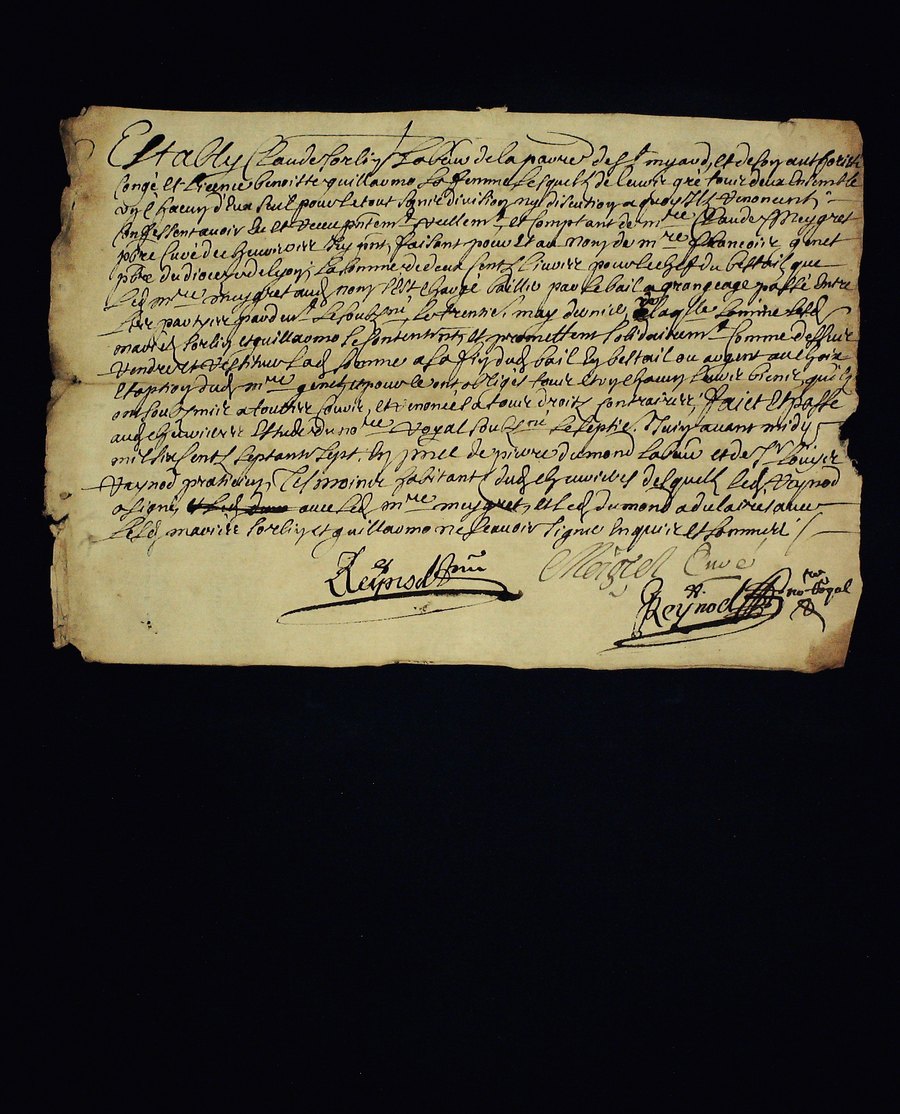 Estably Claude Sorlin Labour de la parre de St myard, et de son authorité
Congé et licence benoitte guillaumo sa femme lesquels de leur gré tous deux ensemble
un chacun d'eux seul pour le tout sans division ny discution a quoy ils renoncent
Confessent avoir eu et receu presentemt reellemt et comptant de mre Claude meygret
pbre Curé de faisant pour et au nom de mre françois genet
pbre du diocese de lyon la somme de deux cents livres pour le chef du bestail que
led mre meygret aud nom est chargé bailler par le bail a grangeage passé entre
les parties par devt le soubsné le trentie may dernier laqlle somme lesd
mariés Sorlin et guillaumo se contentent et promettent solidairemt comme dessus
rendre et restituer lad somme a la fin dud bail en bestail ou argent au choix
et option dud mre genet pour ce ont obligés tous et un chacun leurs biens qu'ils
ont soubsmis a toutes cours, et renoncés a tous droits contraires, faict et passé
aud estude du nore royal soubsné le septie Juin avant midy
mil six cents septante sept. En pnce de pierre dumond labour et de sr louis
raynod praticien tesmoins habitants dud desquels led raynod
a signé avec led mre meygret, et led dumond a declaré
lesd mariés Sorlin et guillaumo ne scavoir signer enquis et sommés
Reynod
Meigret Curé
Reynod nore royal